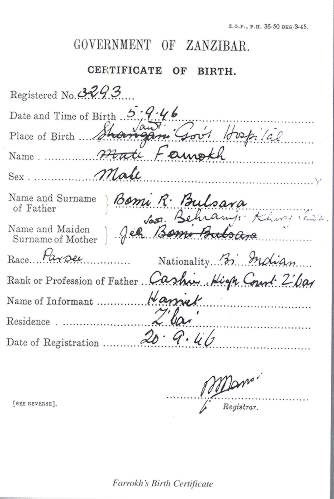 Z.G.P., F.H. 35-50 DKS-3-45.
GOVERNMENT OF ZANZIBAR.
CERTIFICATE OF BIRTH.
Registered No. 3293
Date and Time of Birth 5-9-46
Place of Birth Shangani Govt Hospital
Name Male Farrokh
Sex Male
Name and Surname of Father } Bomi R. Bulsara
Name and Maiden Surname of Mother } Jer Bomi Bulsara
Race Parsee Nationality Br. Indian
Rank or Profession of Father Cashier, High Court Z'bar
Name of Informant
Residence Z'bar
Date of Registration 20-9-46
Registrar.
[SEE REVERSE].
Farrokh's Birth Certificate